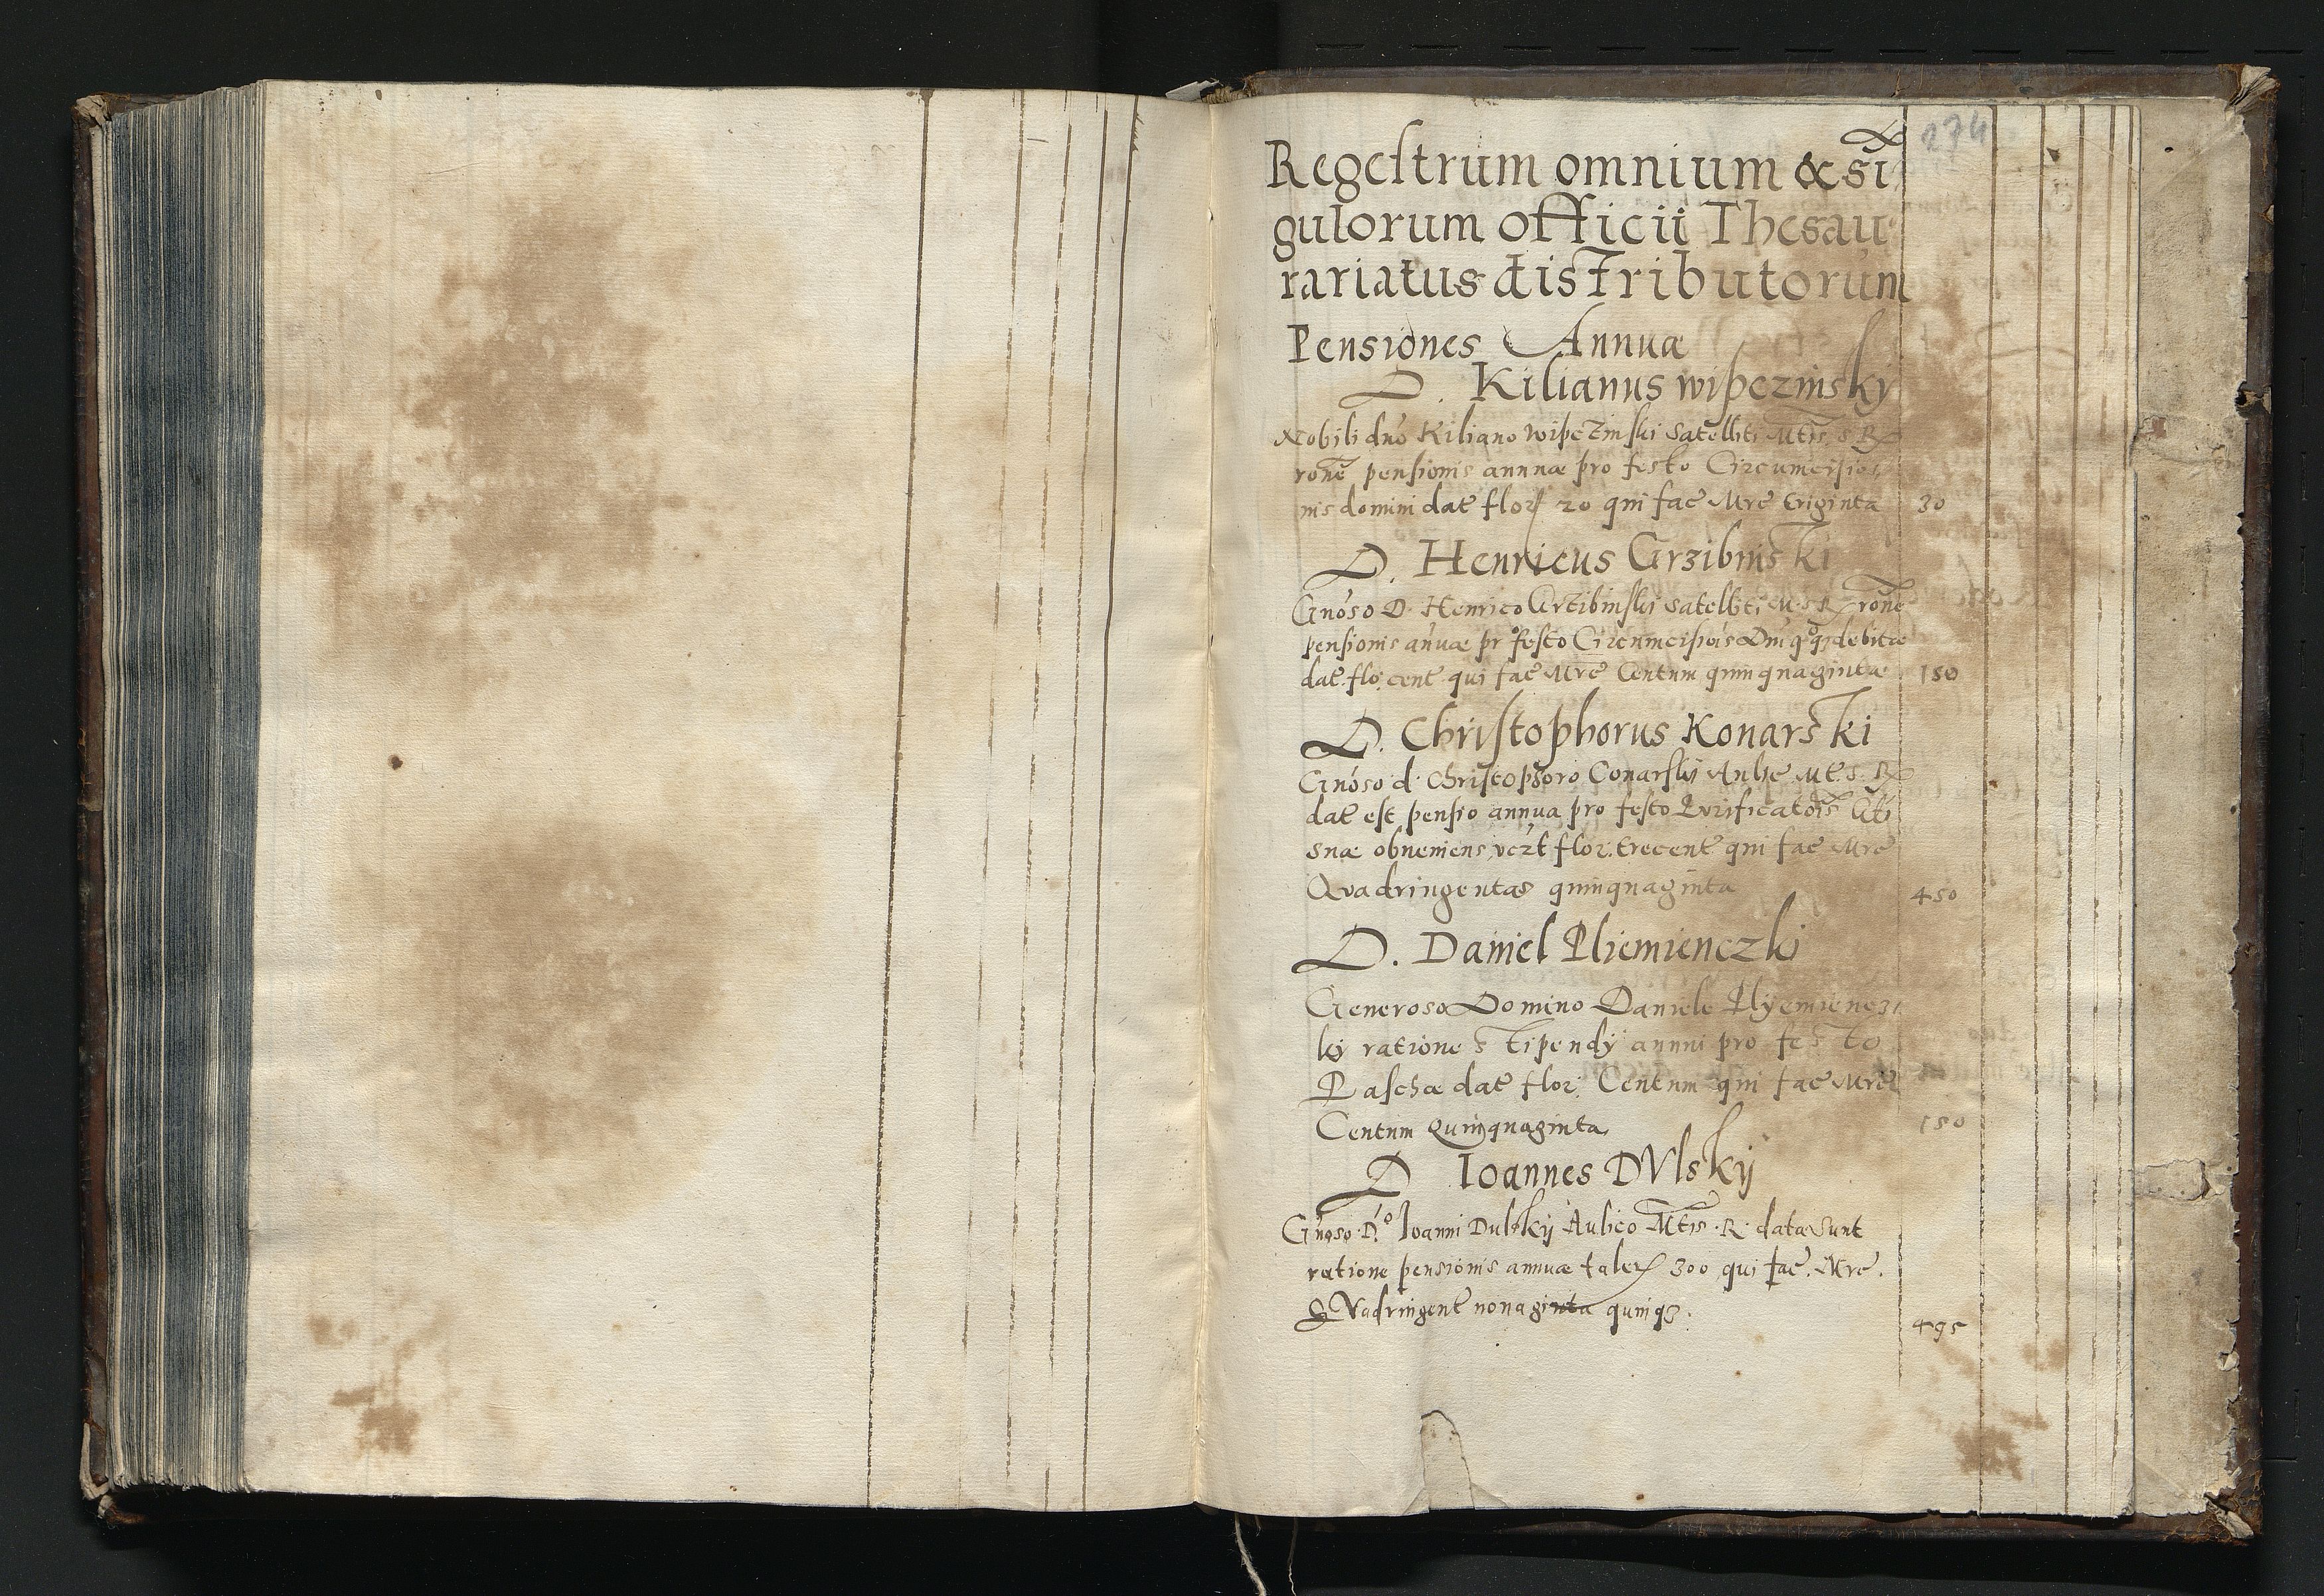 274
Regestrum omnium & si̅
gulorum officii Thesau
rariatus distributorum
Pensiones Annuæ
D. Kilianus wipczinsky
Nobili dn̄o Kiliano wipczinski Satelliti Mtis S R
rōne pensionis annuæ pro festo Circumcisio
nis domini dat flor 20 qui fac Mrc triginta 30
D. Henricus Grzibinski
Gnōso D. Henrico Grzibinski Satelliti M. S R rōne
pensionis an̄uæ pro festo Circumcisiōis Dni debitæ
dat. flo. cent qui fac Mrc Centum quinquaginta 150
D. Christophorus Konarski
Gnōso d. Christophoro Conarski Mt. S. R
dat est pensio annua pro festo Purificatōis
suæ obueniens, vczt flor. trecent qui fac Mrc
Qvadringentas quinquaginta 450
D. Daniel Pliemienczki
Generoso Domino Daniele Plyemiencz
kj ratione stipendÿ annui pro festo
Paschæ dat flor. Centum qui fac Mrc
Centum Quinquaginta 150
D Ioannes DVlskÿ
Gnoso. D.o Ioanni Dulskÿ Aulico Mtis. R. data sunt
ratione pensionis annuæ taler 300 qui fac. Mrc.
QVadringent nonaginta quinq3. 495